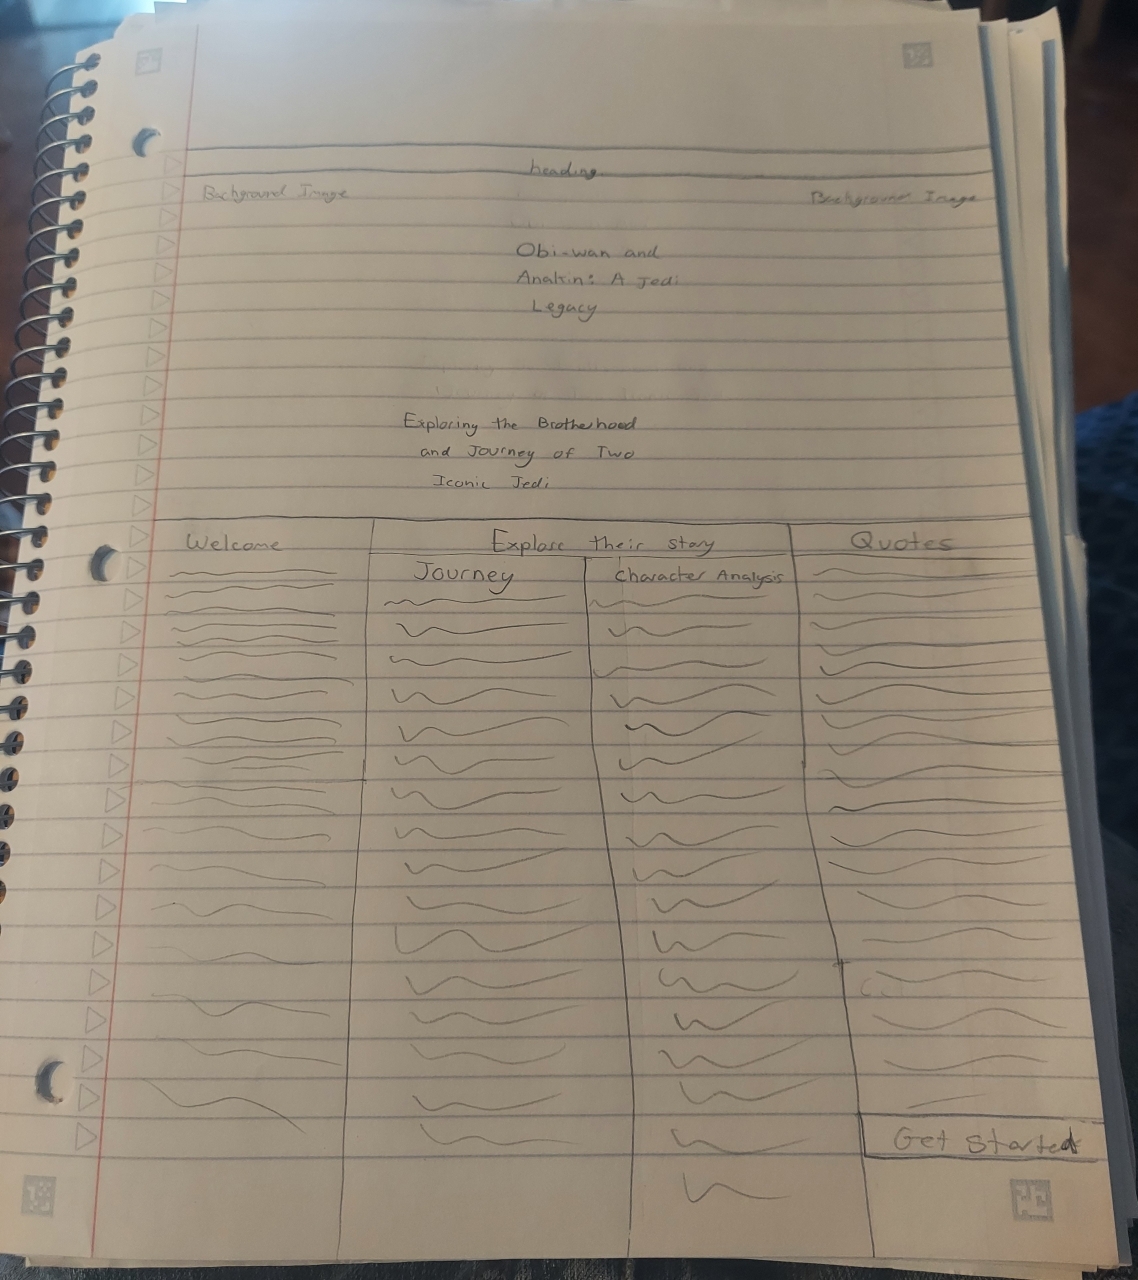 heading
Background Image
Background Image
Obi-wan and
Anakin: A Jedi
Legacy
Exploring the Brotherhood
and Journey of Two
Iconic Jedi
Welcome
Explore their story
Quotes
Journey
Character Analysis
Get Started